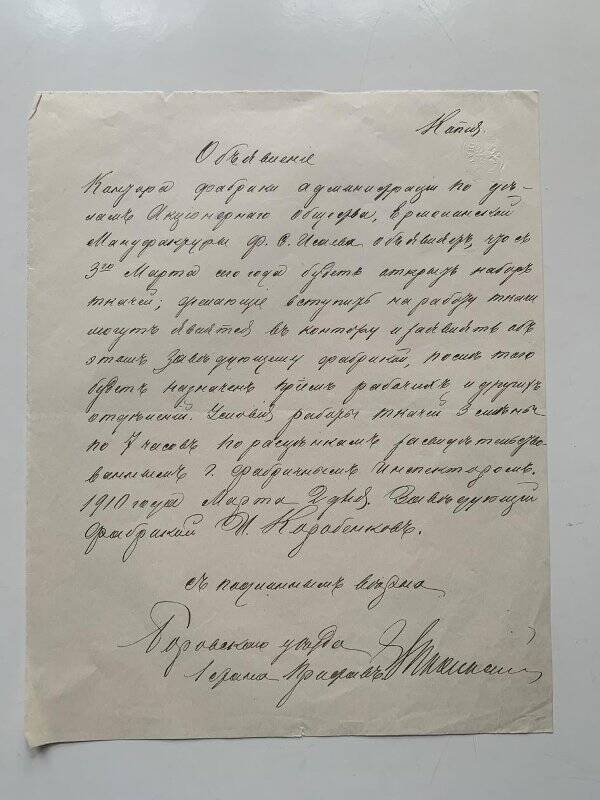 Копія
Объявленіе
Контора фабрики администраціи по дѣ-
ламъ Акціонернаго общества, Ермолинской
Мануфактуры Ф. С. Исаева объявляетъ, что съ
3го Марта сего года будетъ открытъ наборъ
ткачей; желающіе вступить на работу ткачи
могутъ явится въ контору и заявить объ
этомъ Завѣдующему фабрикой, послѣ того
будетъ назначенъ пріемъ рабочихъ и другихъ
отдѣленій. Условія работы ткачей 3 смѣны
по 7 часовъ по расцѣнкамъ засвидѣтельство-
ваннымъ г. Фабричнымъ Инспекторомъ.
1910 года Марта 2 дня. Завѣдующій
фабрикой И. Коробенковъ.
Съ подлиннымъ вѣрно
Боровского уѣзда
1 стана Приставъ